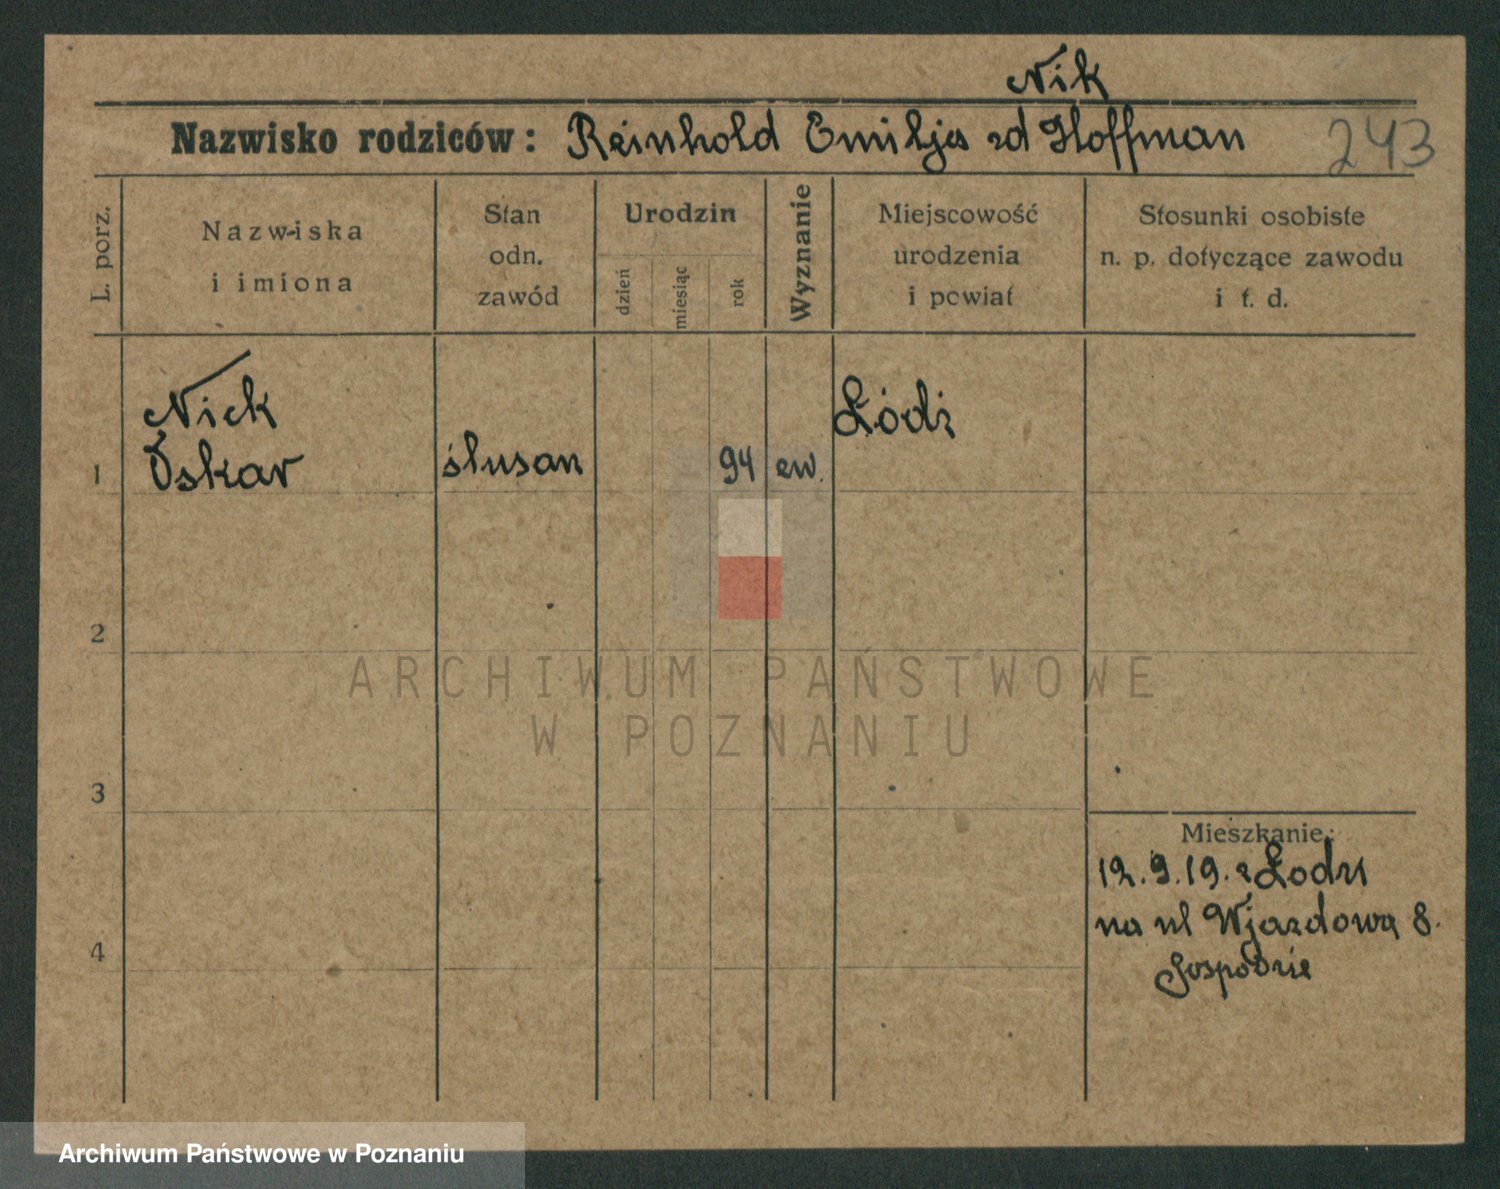 Nik
Nazwisko rodziców: Reinhold Emilja zd Hoffman 243
L. porz.
Nazwiska
i imiona
Stan
odn.
zawód
Urodzin
dzień
miesiąc
rok
Wyznanie
Miejscowość
urodzenia
i powiat
Stosunki osobiste
n. p. dotyczące zawodu
i t. d.
1
Nick
Oskar
ślusarz
94
ew.
Łódź
2
3
4
Mieszkanie:
12.9.19. z Łodzi
na ul Wjazdową 8.
Gospodzie
ARCHIWUM PAŃSTWOWE
W POZNANIU
Archiwum Państwowe w Poznaniu